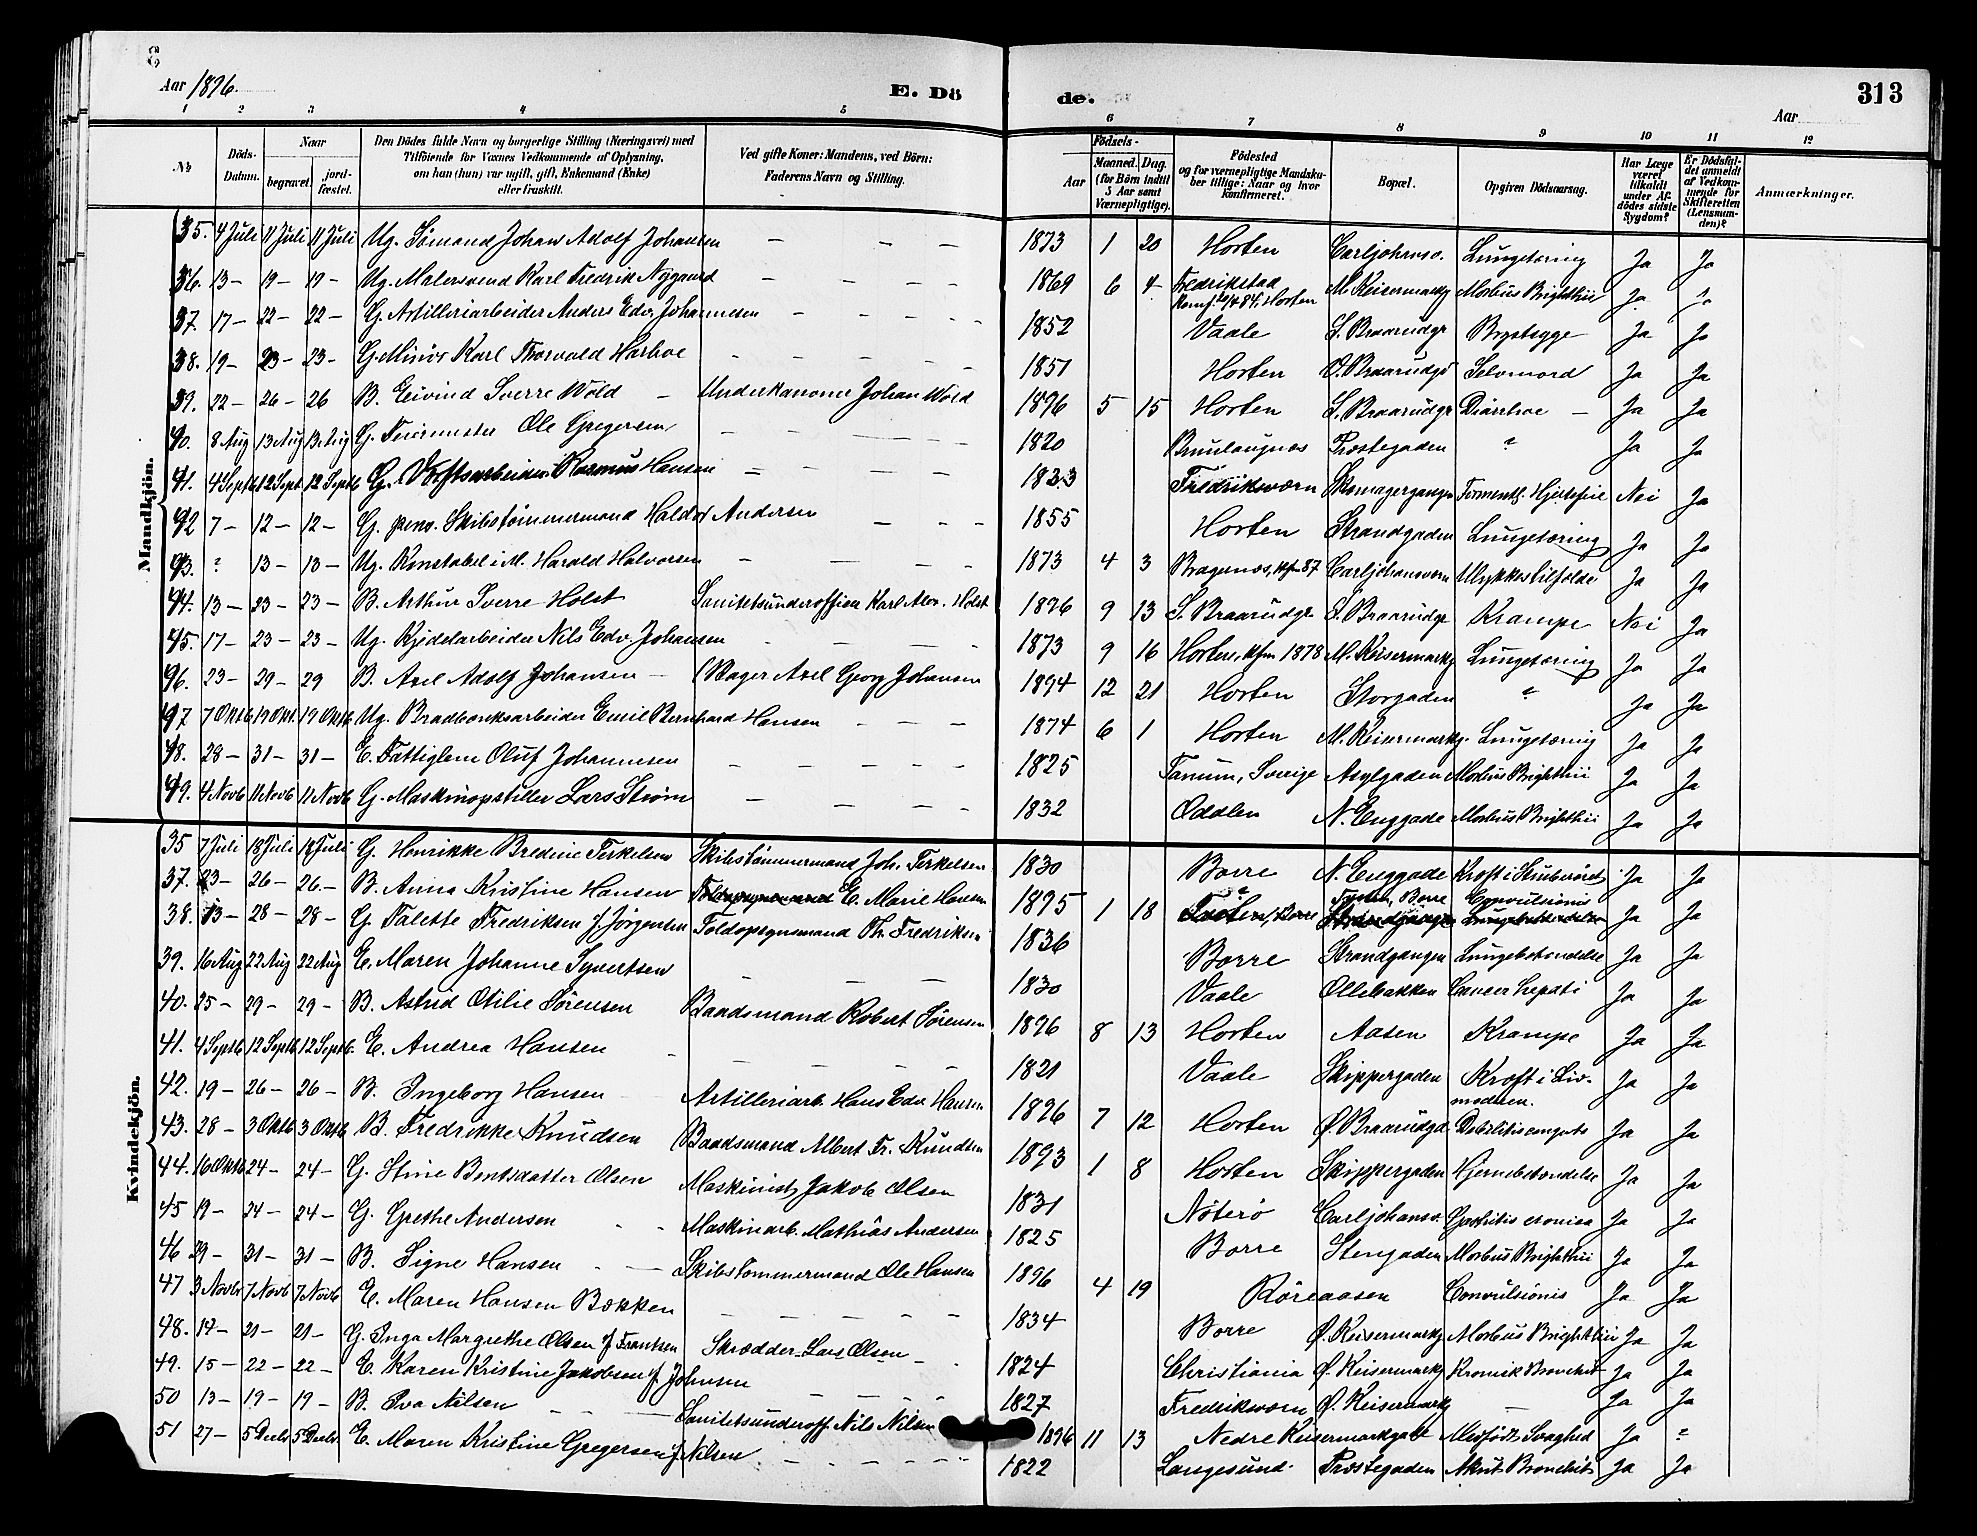 Aar 1896.
E. Dö
de.
Aar
313
1 2 3 4 5 6 7 8 9 10 11 12
No
Döds-Datum.
Naar
begravet.
jord-fæstet.
Den Dödes fulde Navn og borgerlige Stilling (Næringsvei) med
Tilföiende for Voxnes Vedkommende af Oplysning,
om han (hun) var ugift, gift, Enkemand (Enke)
eller fraskilt.
Ved gifte Koner: Mandens, ved Börn:
Faderens Navn og Stilling.
Födsels-
Aar
Maaned. Dag.
(for Börn indtil
5 Aar samt
Værnepligtige).
Födested
og for værnepligtige Mandska-
ber tillige: Naar og hvor
konfirmeret.
Bopæl.
Opgiven Dödsaarsag.
Har Læge
været
tilkaldt
under Af-
dödes sidste
Sygdom?
Er Dödsfal-
det anmeldt
af Vedkom-
mende for
Skifteretten
(Lensman-
den)?
Anmærkninger.
Mandkjön.
35. 4 Juli 11 Juli 11 Juli Ug. Sömand Johan Adolf Johansen — — — 1873 1 20 Horten Carljohansv. Lungetæring Ja Ja
36. 13 — 19 — 19 — Ug. Malersvend Karl Fredrik Nygaard — — — 1869 6 4 Fredrikstad M. Keisermarkg Morbus Brightii Ja
Konf. 84, Horten
37. 17 — 22 — 22 — G. Artilleriarbeider Anders Edv. Johannesen — — — 1852 Vaale S. Braarudgt Brystsyge Ja Ja
38. 19 — 23 — 23 — G. Minör Karl Thorvald Harboe — — — 1851 Horten Ö. Braarudgt Selvmord Ja Ja
39. 22 — 26 — 26 B. Eivind Sverre Wold — Underkanoner Johan Wold 1896 5 15 Horten S. Braarudgt Diarrhoe — Ja Ja
40. 8 Aug 13 Aug 13 Aug G. Feiermester Ole Gregersen — — — 1820 Brunlaugnæs Præstegaden ? Ja Ja
41. 4 Septb 12 Sept. 12 Septb G. Værftsarbeider Rasmus Hansen — — — 1823 Fredriksværn Skomagergangen Formentl. Hjertefeil Nei Ja
42 7 — 12 — 12 — G. pens. Skibstömmermand Haldor Andersen — — — 1855 Horten Strandgaden Lungetæring Ja Ja
43. ? 13 — 13 — Ug. Konstabel i M. Harald Halvorsen — — — 1873 4 3 Bragenæs, kfm 87 Carljohansværn Ulykkestilfælde Ja Ja
44. 13 — 23 — 23 — B. Arthur Sverre Holst Sanitetsunderofficer Karl Alex. Holst 1896 9 13 S. Braarudgt S. Braarudgt Krampe Nei Ja
45. 17 — 23 — 23 — Ug. Kjedelarbeider Nils Edv. Johansen — — — 1873 9 16 Horten, kfm 1878 M. Keisermarkg Lungetæring Ja Ja
46. 23 — 29 — 29 B. Axel Adolf Johansen — Bager Axel Georg Johansen 1894 12 21 Horten Storgaden ? Ja Ja
47 7 Oktb 19 Okt. 19 Oktb Ug. Bradbænksarbeider Emil Bernhard Hansen — — — 1874 6 1 Horten M. Keisermarkg. Lungetæring Ja Ja
48. 28 — 31 — 31 — E. Fattiglem Oluf Johannesen — — — 1825 Tanum, Sverige Asylgaden Morbus Brightii Ja Ja
49. 4 Novb 11 Novb 11 Novb G. Maskinopstiller Lars Ström — — — 1832 Odalen N. Enggade Morbus Brightii Ja Ja
Kvindekjön.
35 7 Juli 18 Juli 18 Juli G. Henrikke Bredine Terkelsen Skibstömmermand Joh. Terkelsen 1830 Borre N. Enggade Kræft i Ja Ja
37. 23 — 26 — 26 — B. Anna Kristine Hansen E. Marie Hansen 1895 1 18 Borre Borre Convulsionis Ja Ja
38. 13 — 28 — 28 — G. Talette Fredriksen f. Jörgensen Toldopsynsmand Th. Fredriksen 1836 Borre Strandgangen Lungebetændelse Ja Ja
39. 16 Aug 22 Aug 22 Aug E. Maren Johanne Syvertsen — — — 1830 Vaale Ollebakken Cancer hepati Ja Ja
40. 25 — 29 — 29 — B. Astrid Otilie Sörensen Baadsmand Robert Sörensen 1896 8 13 Horten Aasen Krampe Ja Ja
41. 4 Septb 12 Septb 12 Septb. E. Andrea Hansen — — — 1821 Vaale Skippergaden Kræft i Liv- Ja Ja
moderen.
42. 19 — 26 — 26 — B. Ingeborg Hansen Artilleriarb. Hans Edv. Hansen 1896 7 12 Horten Ø. Braarudgd. Debilitis congnt. Ja Ja
43. 28 — 3 Oktb 3 Oktb B. Fredrikke Knudsen Baadsmand Albert Fr. Knudsen 1893 1 8 Horten Skippergaden Hjernebetændelse Ja Ja
44. 16 Oktb 24 — 24 — G. Stine Bentsdatter Olsen Maskinist Jakob Olsen 1831 Nöterö Carljohansv. Gastritis cronica Ja Ja
45 19 — 24 — 24 — G. Grethe Andersen — — Maskinarb. Mathias Andersen 1825 Borre Stengaden Morbus Brightii Ja Ja
46 29 — 31 — 31 — B. Signe Hansen — — Skibstömmermand Ole Hansen 1896 4 19 Röreaasen Convulsionis Ja Ja
47 3 Novbr 7 Novb 7 Novb E. Maren Hansen Bækken — — — 1834 Borre Ø. Keisermarkg Morbus Brightii Ja Ja
48. 14 — 21 — 21 — G. Inga Margrethe Olsen f. Frantsen Skrædder Lars Olsen — 1824 Christiania Ø. Keisermarkg Kronisk Bronchit Ja Ja
49. 15 — 22 — 22 — E. Karen Kristine Jakobsen f. Johnsen — — — 1827 Fredriksværn Ø. Keisermarkg — Ja Ja
50 13 — 19 — 19 — B. Eva Nilsen — — Sanitetsunderoff. Nils Nilsen 1896 11 13 Nedre Keisermarkgatt Medfödt Svaghed Ja ?
51 27 — 5 Decbr 5 Decbr. E. Maren Kristine Gregersen f. Nilsen — — — 1822 Langesund Præstegaden Akut Bronchit Ja Ja